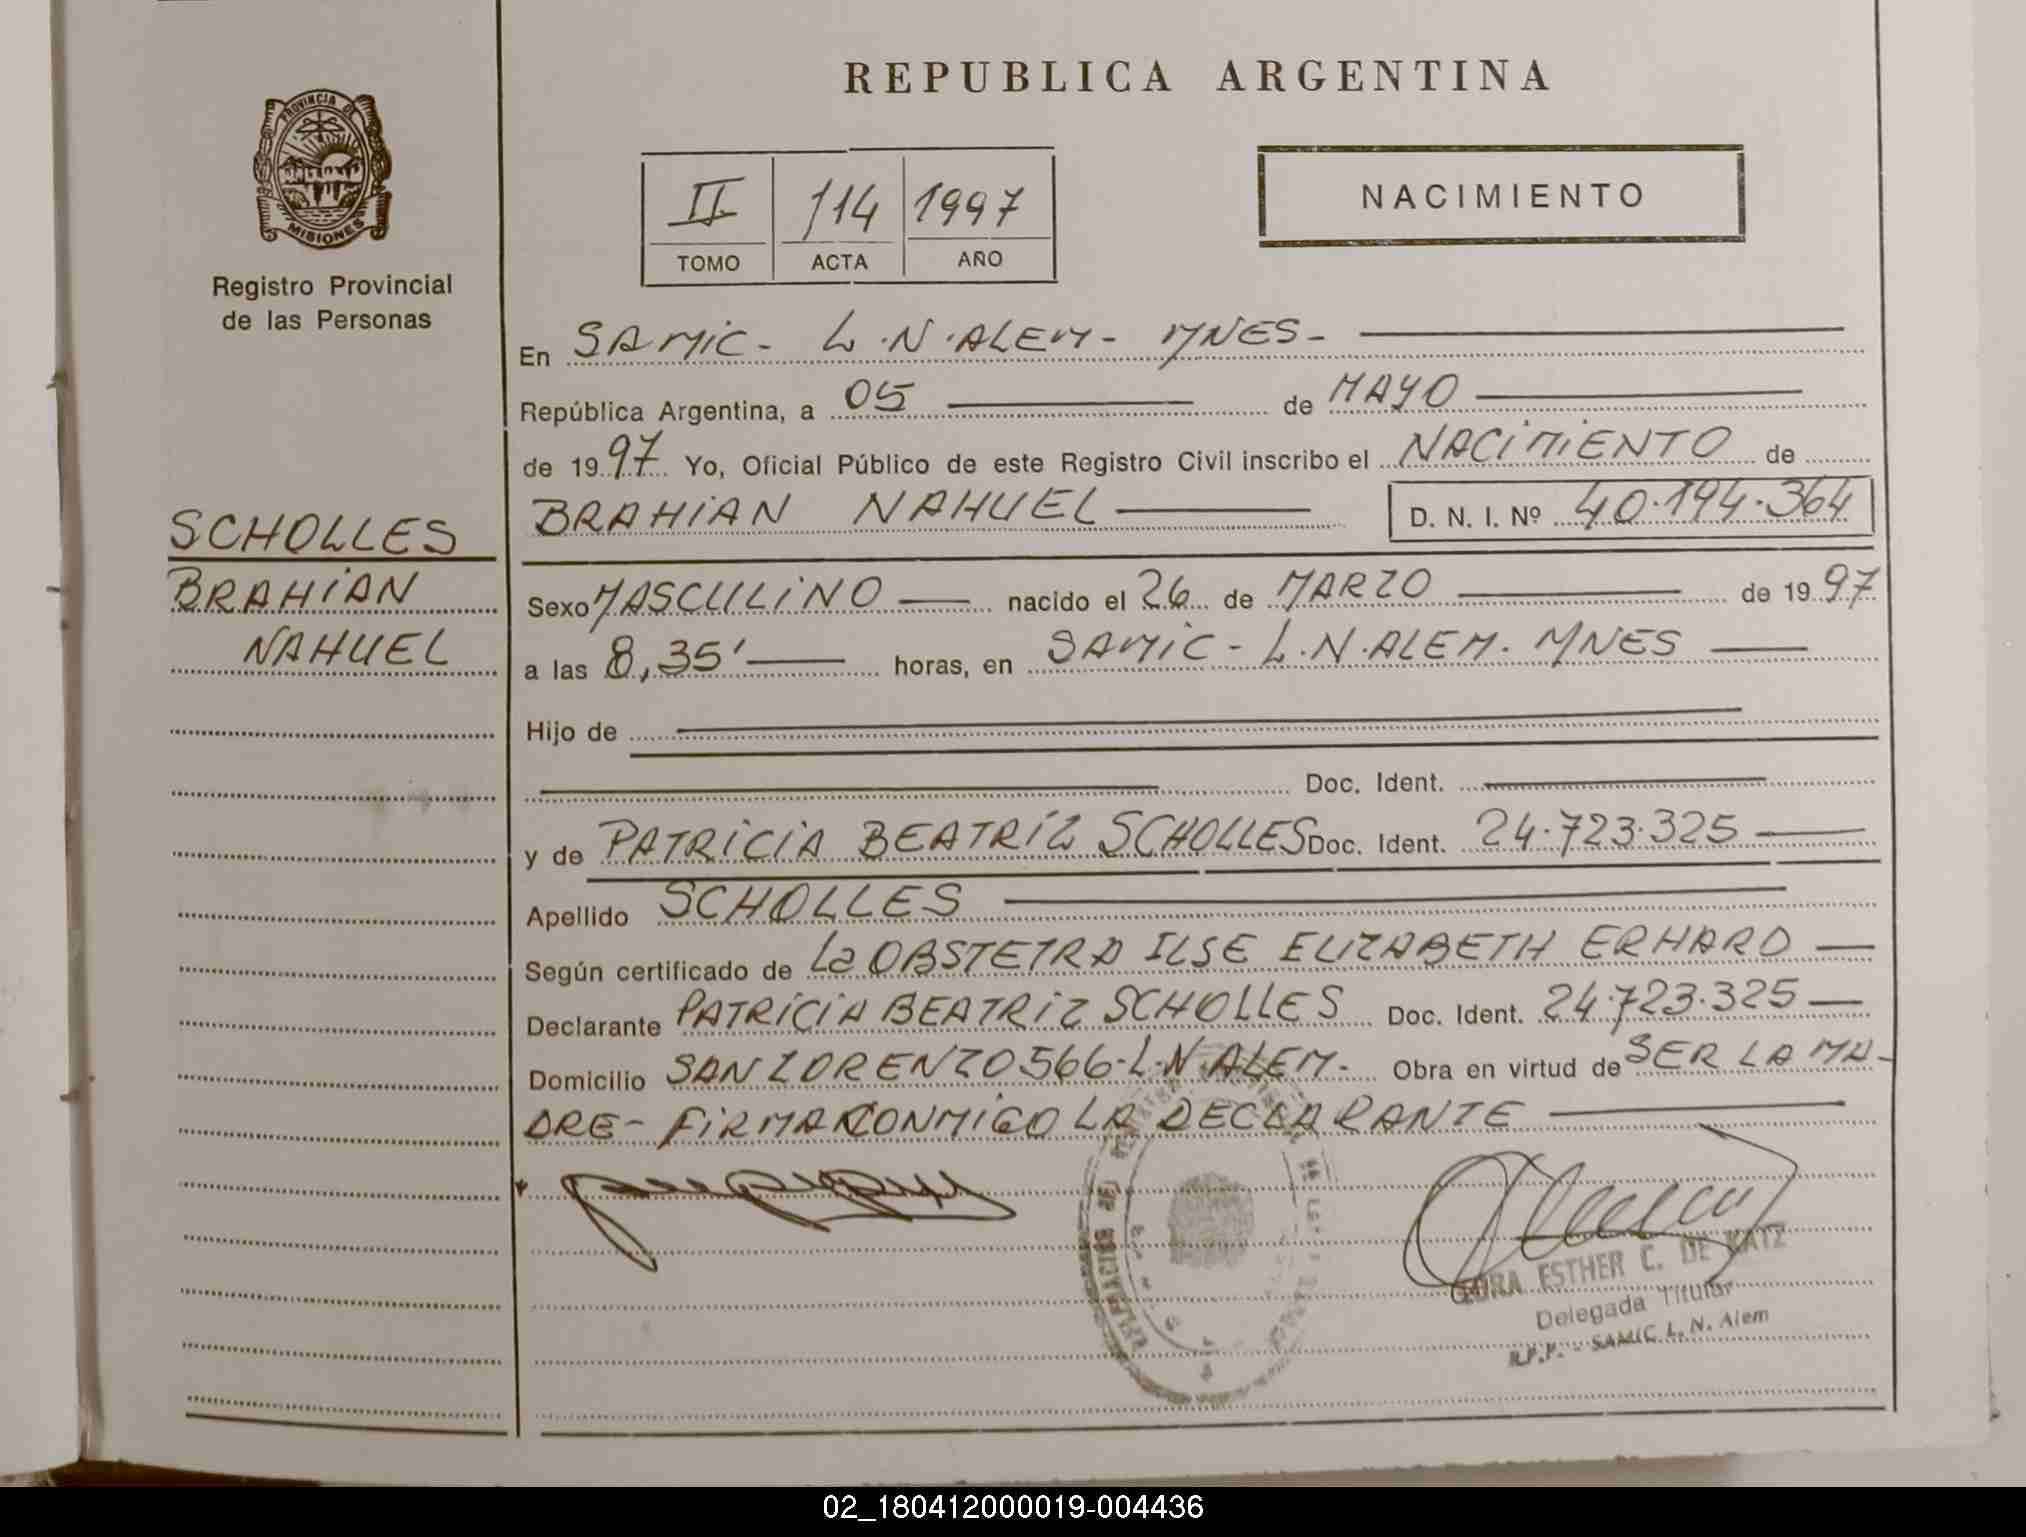 REPUBLICA ARGENTINA
PROVINCIA DE
MISIONES
Registro Provincial
de las Personas
II 114 1997
TOMO ACTA AÑO
NACIMIENTO
En SAMIC - L.N.ALEM - MNES -
República Argentina, a 05 de MAYO
de 1997 Yo, Oficial Público de este Registro Civil inscribo el NACIMIENTO de
BRAHIAN NAHUEL D. N. I. Nº 40.194.364
SCHOLLES
BRAHIAN
NAHUEL
Sexo MASCULINO nacido el 26 de MARZO de 1997
a las 8,35' horas, en SAMIC - L.N.ALEM. MNES
Hijo de
Doc. Ident.
y de PATRICIA BEATRIZ SCHOLLES Doc. Ident. 24.723.325
Apellido SCHOLLES
Según certificado de La OBSTETRA ILSE ELIZABETH ERHARD
Declarante PATRICIA BEATRIZ SCHOLLES Doc. Ident. 24.723.325
Domicilio SAN LORENZO 566-L.N.ALEM- Obra en virtud de SER LA MA-
DRE- FIRMA CONMIGO LA DECLARANTE
ESTHER C. DE KATZ
Delegada Titular
R.P.P. - SAMIC L. N. Alem
02_180412000019-004436